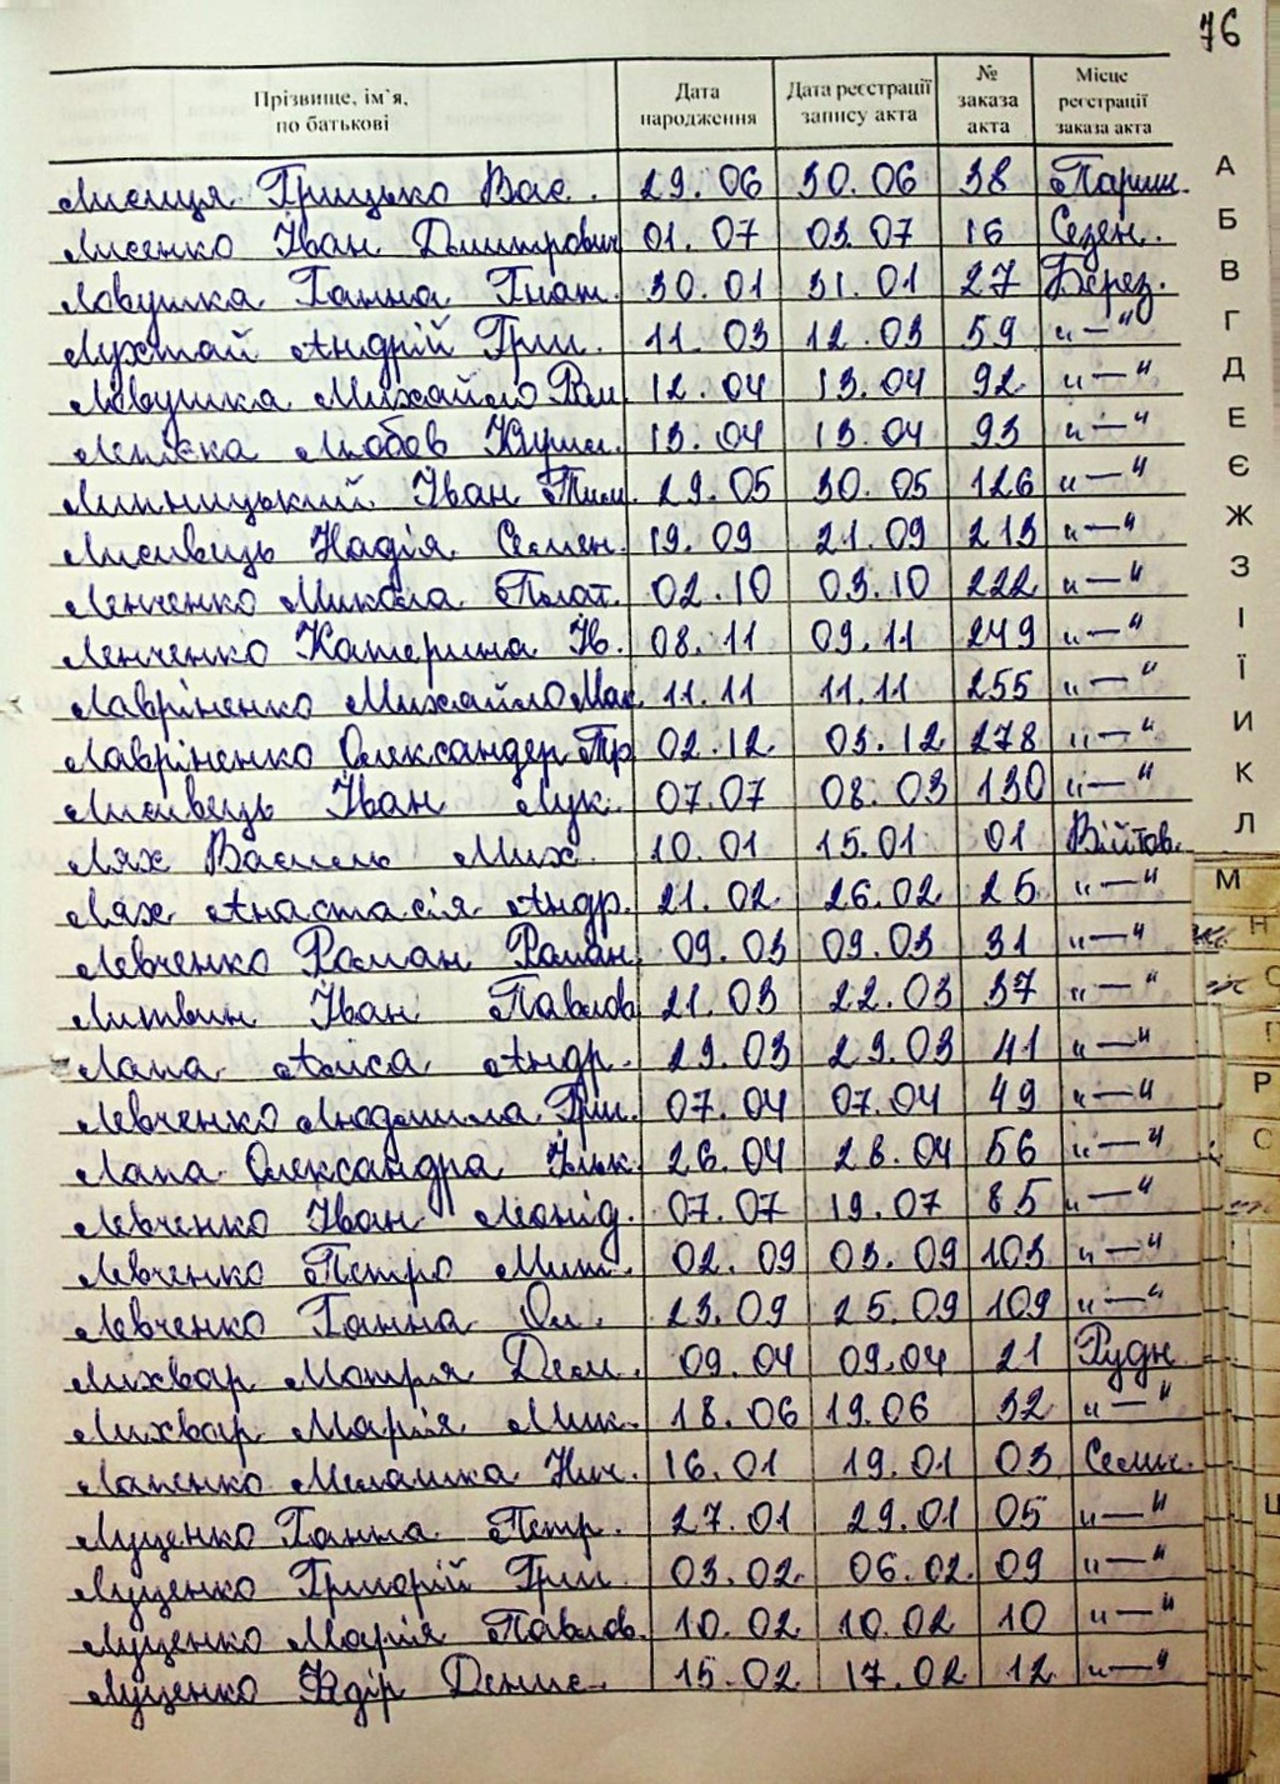 76
Прізвище, ім`я, по батькові | Дата народження | Дата реєстрації запису акта | № заказа акта | Місце реєстрації заказа акта
Лисиця Грицько Вас. 29.06 30.06 38 Париш.
Лисенко Іван Дмитрович 01.07 03.07 16 Сезен.
Ловушка Ганна Гнат. 30.01 31.01 27 Берез.
Лухтай Андрій Гри. 11.03 12.03 59 "—"
Ловушка Михайло 12.04 13.04 92 "—"
Любов 13.04 13.04 93 "—"
Липницький Іван Тим. 29.05 30.05 126 "—"
Лисивець Надія Семен. 19.09 21.09 213 "—"
Ленченко Микола Плат. 02.10 03.10 222 "—"
Ленченко Катерина Ів. 08.11 09.11 249 "—"
Лавріненко Михайло Мак. 11.11 11.11 255 "—"
Лавріненко Олександер Тр 02.12 03.12 278 "—"
Лисивець Іван Лук. 07.07 08.03 130 "—"
Лях Василь Мих. 10.01 15.01 01 Війтов.
Лях Анастасія Андр. 21.02 26.02 25 "—"
Левченко Роман Роман. 09.03 09.03 31 "—"
Литвин Іван Павлов 21.03 22.03 37 "—"
Лапа Андр. 29.03 29.03 41 "—"
Левченко Людмила Гри. 07.04 07.04 49 "—"
Лапа Олександра 26.04 28.04 56 "—"
Левченко Іван Леонід. 07.07 19.07 85 "—"
Левченко Петро Мит. 02.09 03.09 103 "—"
Левченко Ганна Ол. 23.09 25.09 109 "—"
Лихвар Мотря Дем. 09.04 09.04 21 Рудн
Лихвар Марія Мик. 18.06 19.06 32 "—"
Лапенко Меланка Нич. 16.01 19.01 03 Семи.
Луценко Ганна Петр. 27.01 29.01 05 "—"
Луценко Григорій Гри. 03.02. 06.02. 09 "—"
Луценко Марія Павлов. 10.02 10.02 10 "—"
Луценко Денис. 15.02 17.02 12 "—"
А
Б
В
Г
Д
Е
Є
Ж
З
І
Ї
И
К
Л
М
Н
О
П
Р
С
Ш